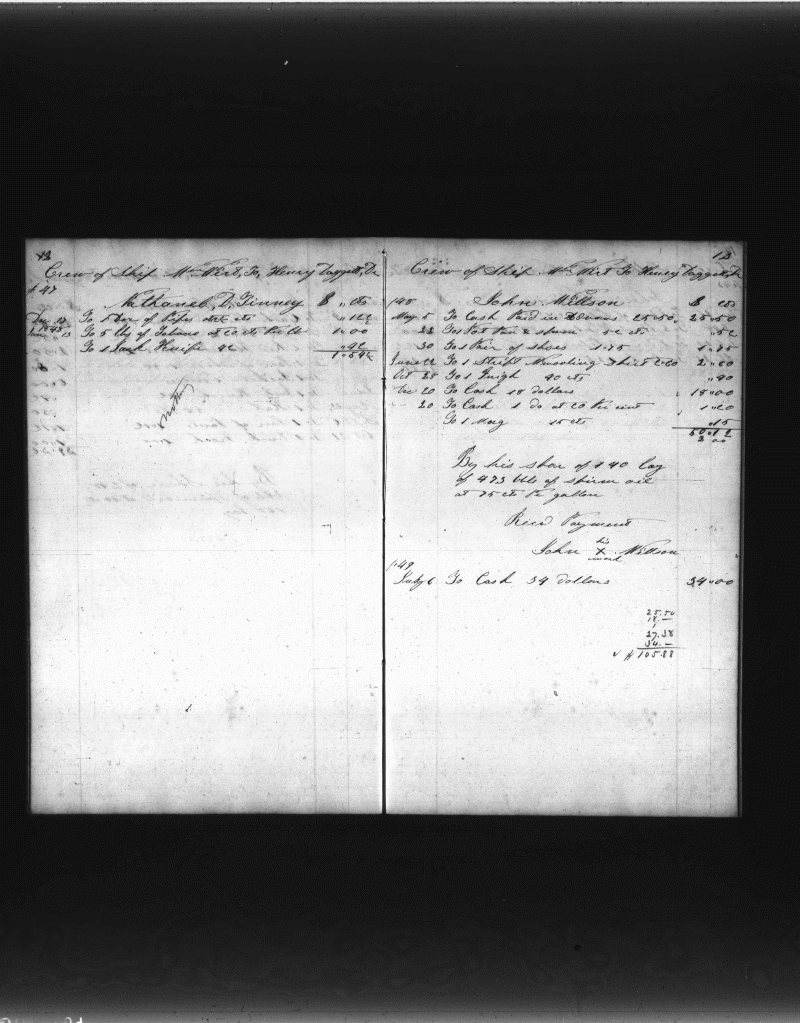 13
Crew of Ship Wm Wirt, To, Henry Daggett, Dr
47
Nathaniel D. Finney $ " cts
To 1 Doz of Pipes
Jan 13 To 5 lbs of at 20 cts the lb 1"00
To 1 Jack Knife 42 "42
1"54
13
Crew of Ship Wm Wirt To Henry Daggett, Dr
John Willson $ cts
May 5 To Cash Paid in 25"50 25"50
22 To 1 Pot Pan & spoon 52 cts "52
30 To 1 Pair of Shoes 1.75 1"75
June 22 To 1 Shirt 2"00
Oct 28 To 1 90 cts "90
Dec 20 To Cash 18 dollars 18"00
20 To Cash 1 do at 20 per cent 1"20
To 1 Mug 15 cts "15
2 00
By his share of 140 lay
of 473 bbls of sperm oil
at 75 cts the gallon
Recd Payment
his
John X Willson
mark
1849
July 6 To Cash 34 dollars 34"00
25.50
18.—
27.38
34.—
$105.88